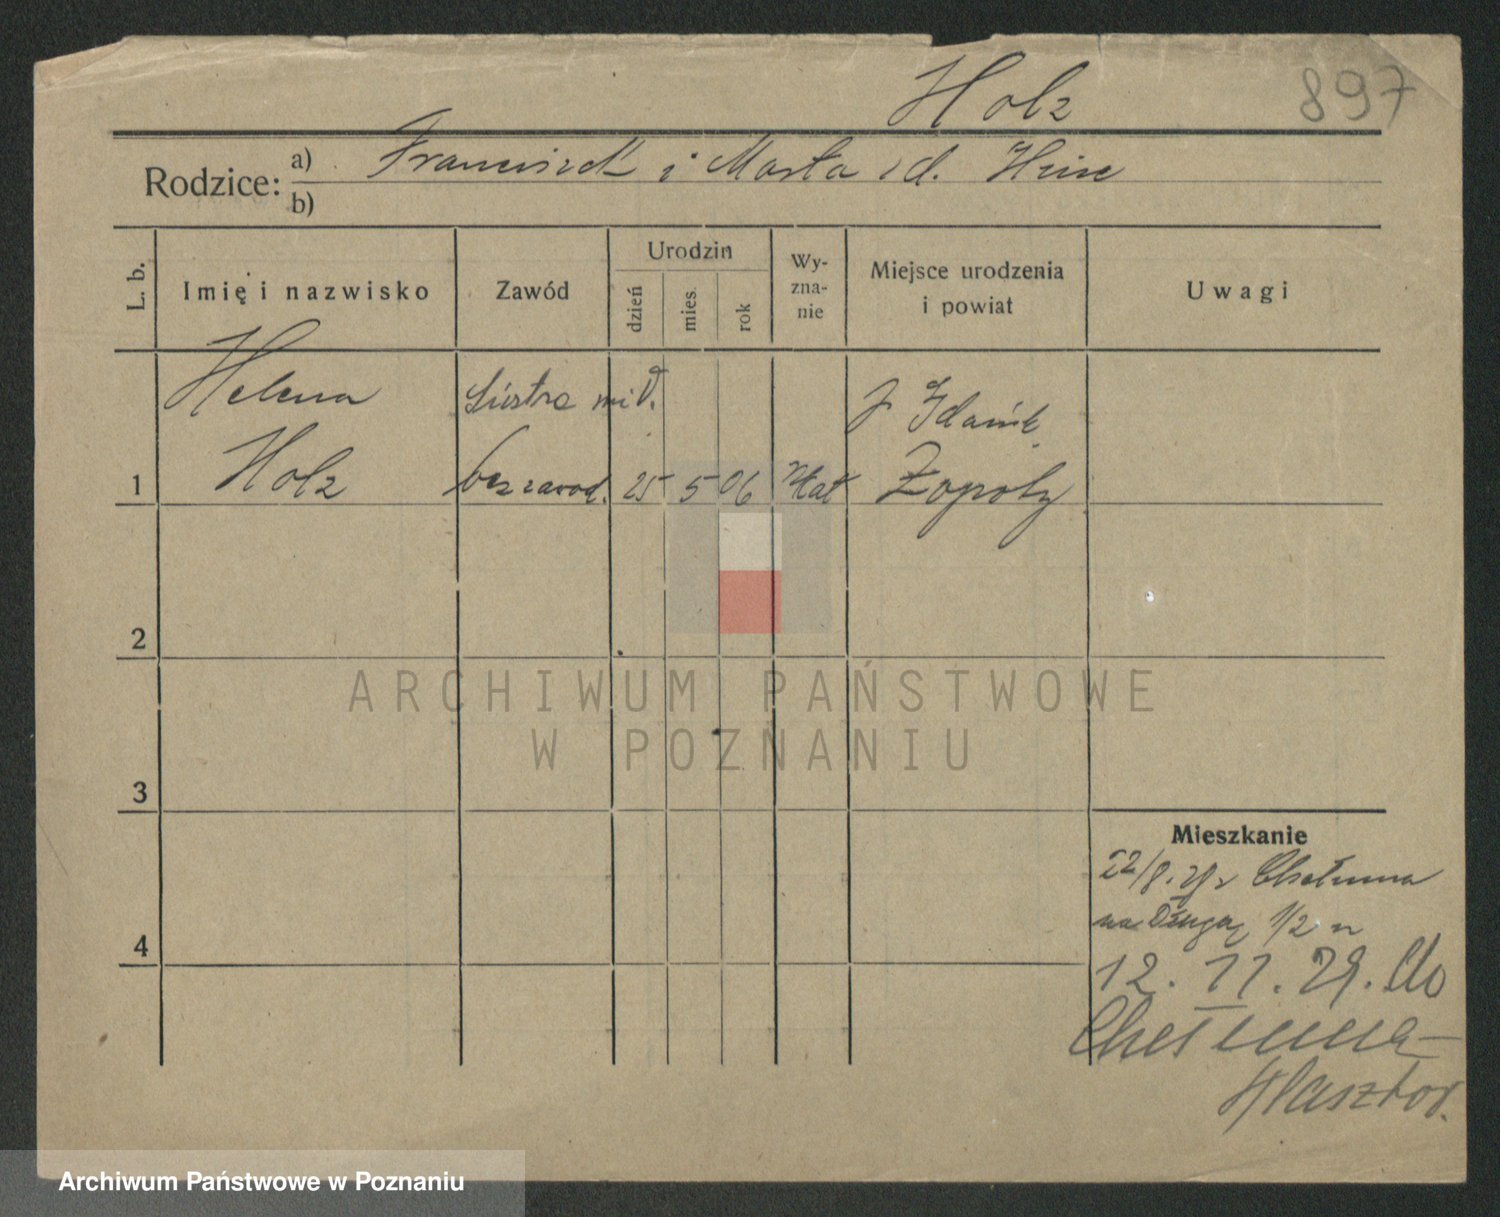 Holz 897
Rodzice: a) Franciszek i Marta d.
b)
L. b. Imię i nazwisko Zawód Urodzin dzień mies. rok Wy-zna-nie Miejsce urodzenia i powiat Uwagi
Helena Siostra mił.
Holz bez zawod. 25 5 06 Kat
1
2
3
4
Mieszkanie
22/8. 29 z Chełmna
na Długą 1/2
12. 11. 29. do
Chełmna
Klasztor.
ARCHIWUM PAŃSTWOWE
W POZNANIU
Archiwum Państwowe w Poznaniu